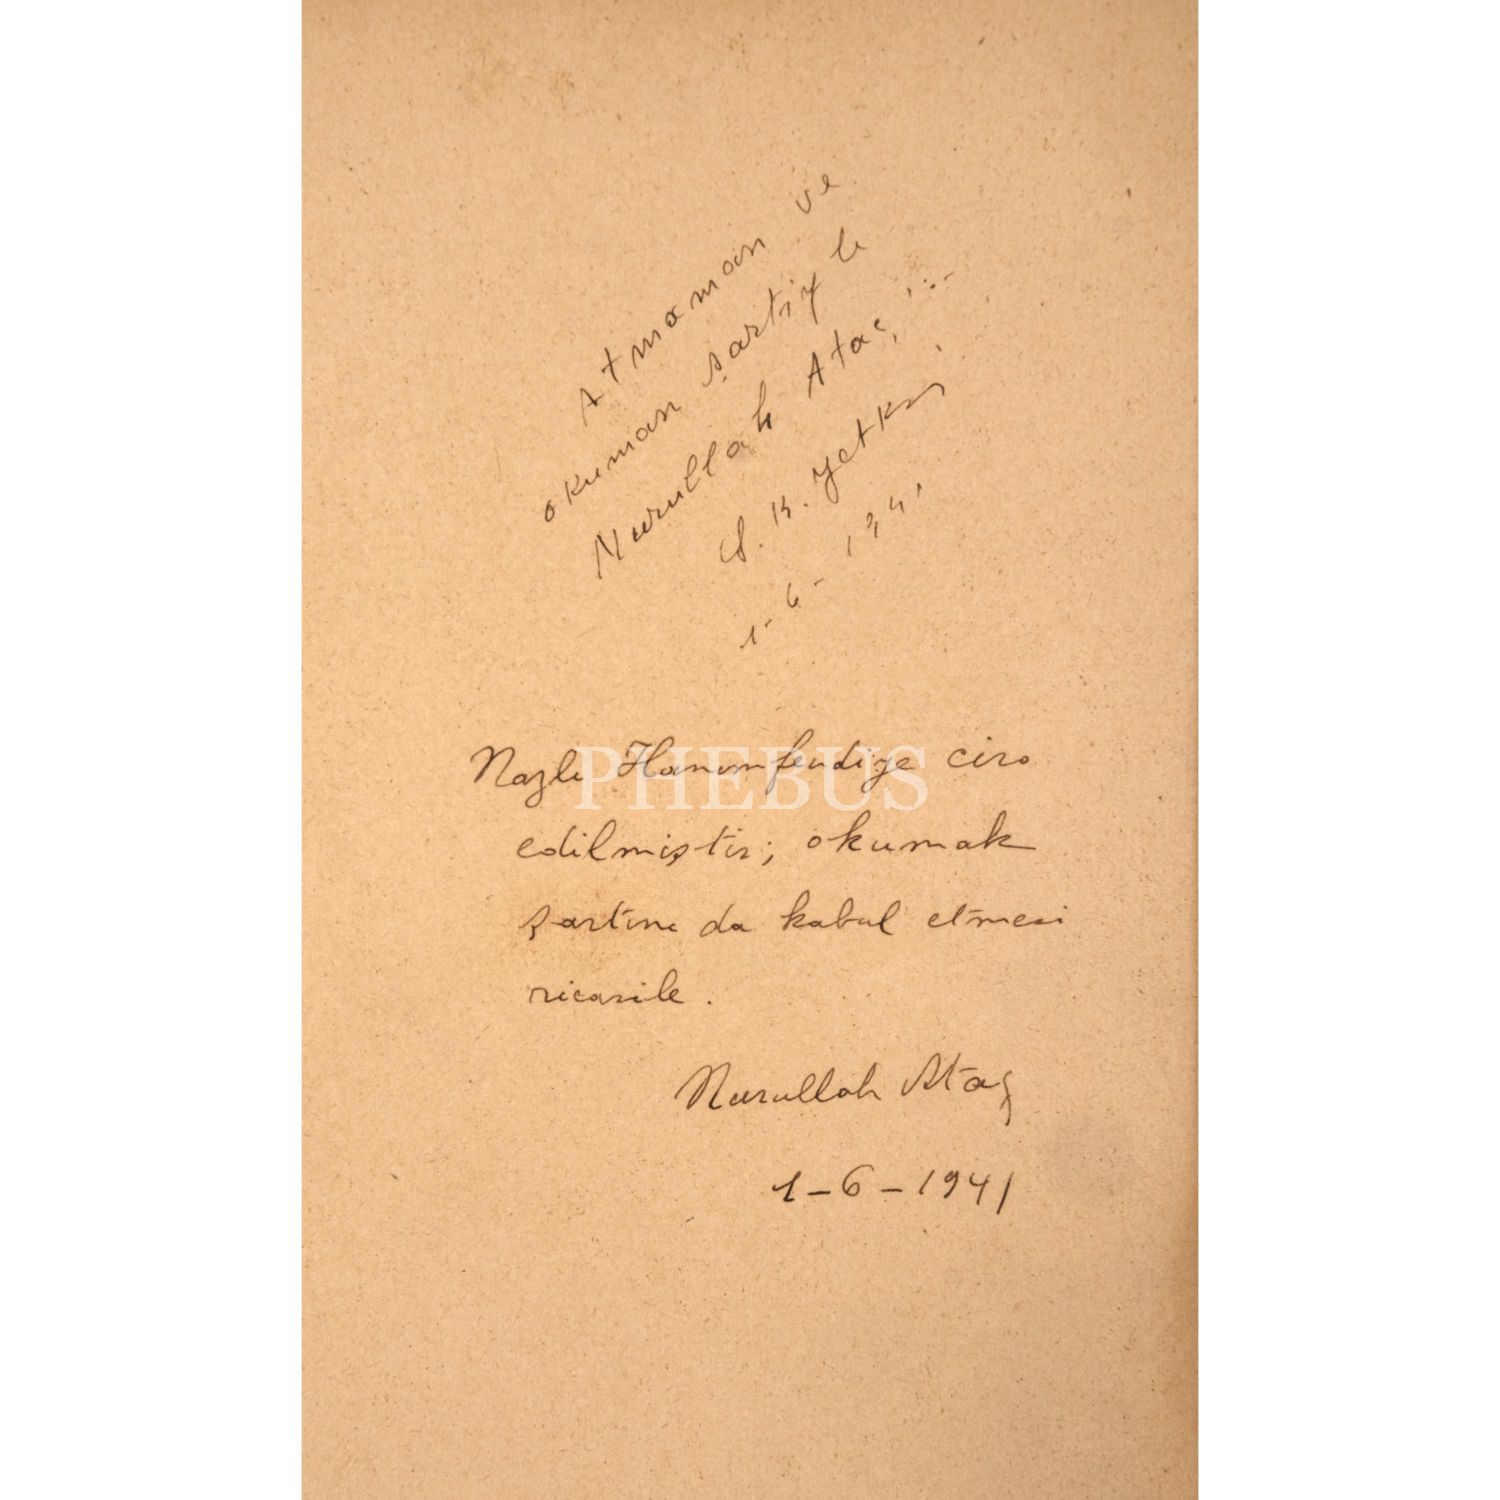 Atmaman ve
okuman şartiyle
Nurullah Ataç'a
S. K. Yetkin
1-6-1941
Nazlı Hanımfendiye ciro
edilmiştir; okumak
şartını da kabul etmesi
ricasile.
Nurullah Ataç
1-6-1941
PHEBUS